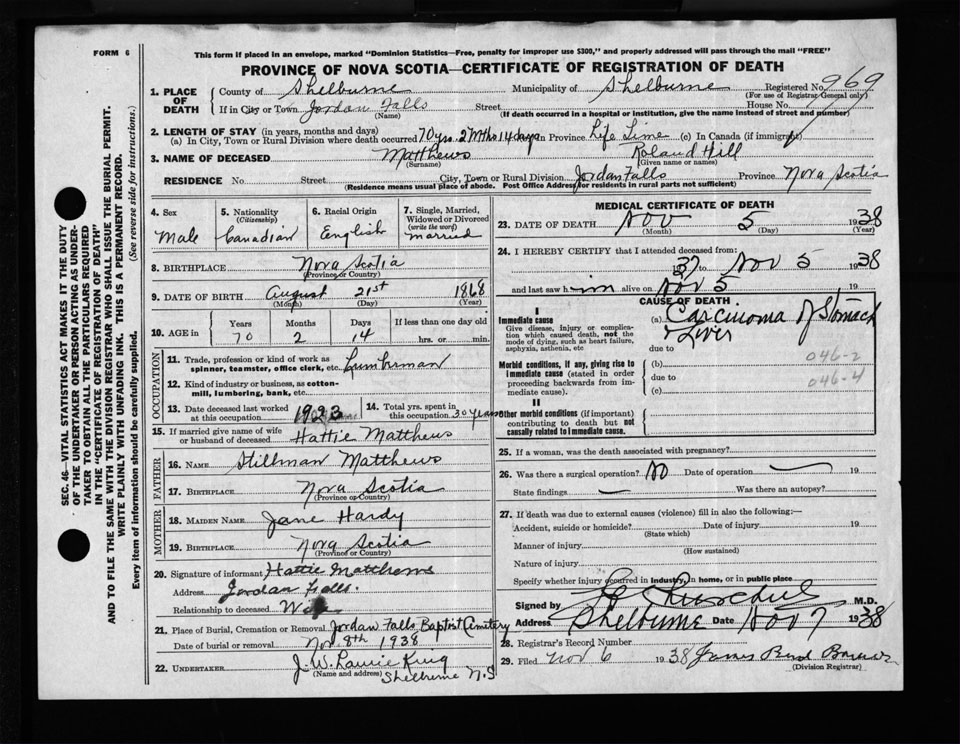 FORM 6
This form if placed in an envelope, marked "Dominion Statistics—Free, penalty for improper use $300," and properly addressed will pass through the mail "FREE"
PROVINCE OF NOVA SCOTIA—CERTIFICATE OF REGISTRATION OF DEATH
SEC. 46—VITAL STATISTICS ACT MAKES IT THE DUTY
OF THE UNDERTAKER OR PERSON ACTING AS UNDER-
TAKER TO OBTAIN ALL THE PARTICULARS REQUIRED
IN THE "CERTIFICATE OF REGISTRATION OF DEATH"
AND TO FILE THE SAME WITH THE DIVISION REGISTRAR WHO SHALL ISSUE THE BURIAL PERMIT.
WRITE PLAINLY WITH UNFADING INK. THIS IS A PERMANENT RECORD.
Every item of information should be carefully supplied. (See reverse side for instructions.)
1. PLACE OF DEATH
County of Shelburne Municipality of Shelburne Registered No. 969
(For use of Registrar-General only)
If in City or Town Jordan Falls Street House No.
(Name) (If death occurred in a hospital or institution, give the name instead of street and number)
2. LENGTH OF STAY (in years, months and days)
(a) In City, Town or Rural Division where death occurred 70 yrs. 2 Mths 14 days in Province Life Time (c) In Canada (if immigrant)
3. NAME OF DECEASED Matthews Roland Hill
(Surname) (Given name or names)
RESIDENCE No. Street City, Town or Rural Division Jordan Falls Province Nova Scotia
(Residence means usual place of abode. Post Office Address for residents in rural parts not sufficient)
4. Sex 5. Nationality (Citizenship) 6. Racial Origin 7. Single, Married, Widowed or Divorced (write the word)
Male Canadian English married
8. BIRTHPLACE Nova Scotia
(Province or Country)
9. DATE OF BIRTH August 21st 1868
(Month) (Day) (Year)
10. AGE in Years Months Days If less than one day old
70 2 14 hrs. or min.
OCCUPATION
11. Trade, profession or kind of work as spinner, teamster, office clerk, etc. Lumberman
12. Kind of industry or business, as cotton-mill, lumbering, bank, etc.
13. Date deceased last worked at this occupation 1923
14. Total yrs. spent in this occupation 30 years
15. If married give name of wife or husband of deceased Hattie Matthews
FATHER
16. NAME Stillman Matthews
17. BIRTHPLACE Nova Scotia
(Province or Country)
MOTHER
18. MAIDEN NAME Jane Hardy
19. BIRTHPLACE Nova Scotia
(Province or Country)
20. Signature of informant Hattie Matthews
Address Jordan Falls.
Relationship to deceased Wife
21. Place of Burial, Cremation or Removal Jordan Falls Baptist Cemetery
Date of burial or removal Nov. 8th 1938
22. UNDERTAKER J. W. Laurie King
(Name and address) Shelburne N.S
MEDICAL CERTIFICATE OF DEATH
23. DATE OF DEATH Nov 5 1938
(Month) (Day) (Year)
24. I HEREBY CERTIFY that I attended deceased from:
1937 to Nov 5 1938
and last saw him alive on Nov 5 19
CAUSE OF DEATH
I
Immediate cause
Give disease, injury or complication which caused death, not the mode of dying, such as heart failure, asphyxia, asthenia, etc
(a) Carcinoma of Stomach
Liver
due to
046-2
Morbid conditions, if any, giving rise to immediate cause (stated in order proceeding backwards from immediate cause).
(b)
due to
046-4
(c)
II
Other morbid conditions (if important) contributing to death but not causally related to immediate cause.
25. If a woman, was the death associated with pregnancy?
26. Was there a surgical operation? No Date of operation — 19
State findings — Was there an autopsy?
27. If death was due to external causes (violence) fill in also the following:—
Accident, suicide or homicide? Date of injury 19
(State which)
Manner of injury
(How sustained)
Nature of injury
Specify whether injury occurred in Industry, in home, or in public place
Signed by M.D.
Address Shelburne Date Nov 7 1938
28. Registrar's Record Number
29. Filed Nov 6 1938 James
(Division Registrar)